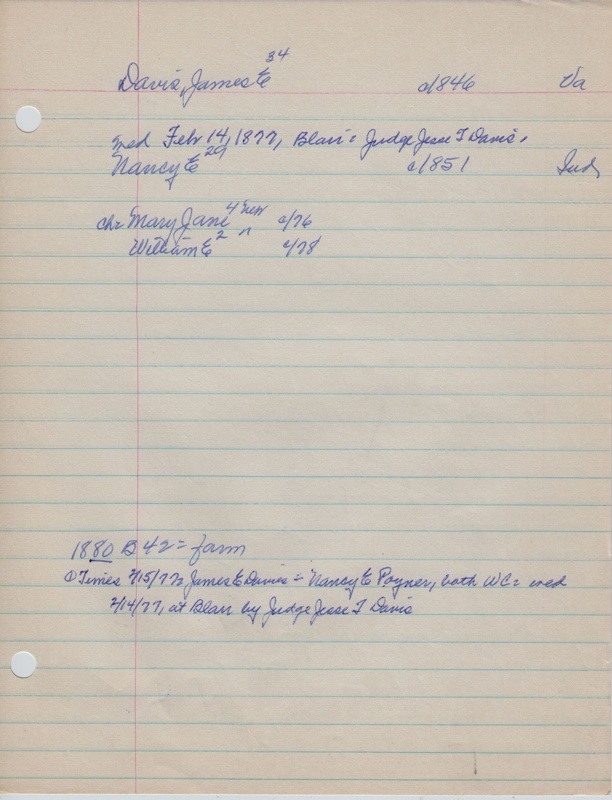 Davis, James E 34 c/1846 Va
med Feb 14, 1877, Blair = Judge Jesse T Davis.
Nancy E 29 c/1851 Ind
chr Mary Jane 4 Nebr c/76
William E 2 " c/78
1880 B 42 = farm
Times 2/15/77 = James E Davis = Nancy E Poyner, both WC = med
2/14/77, at Blair by Judge Jesse T Davis